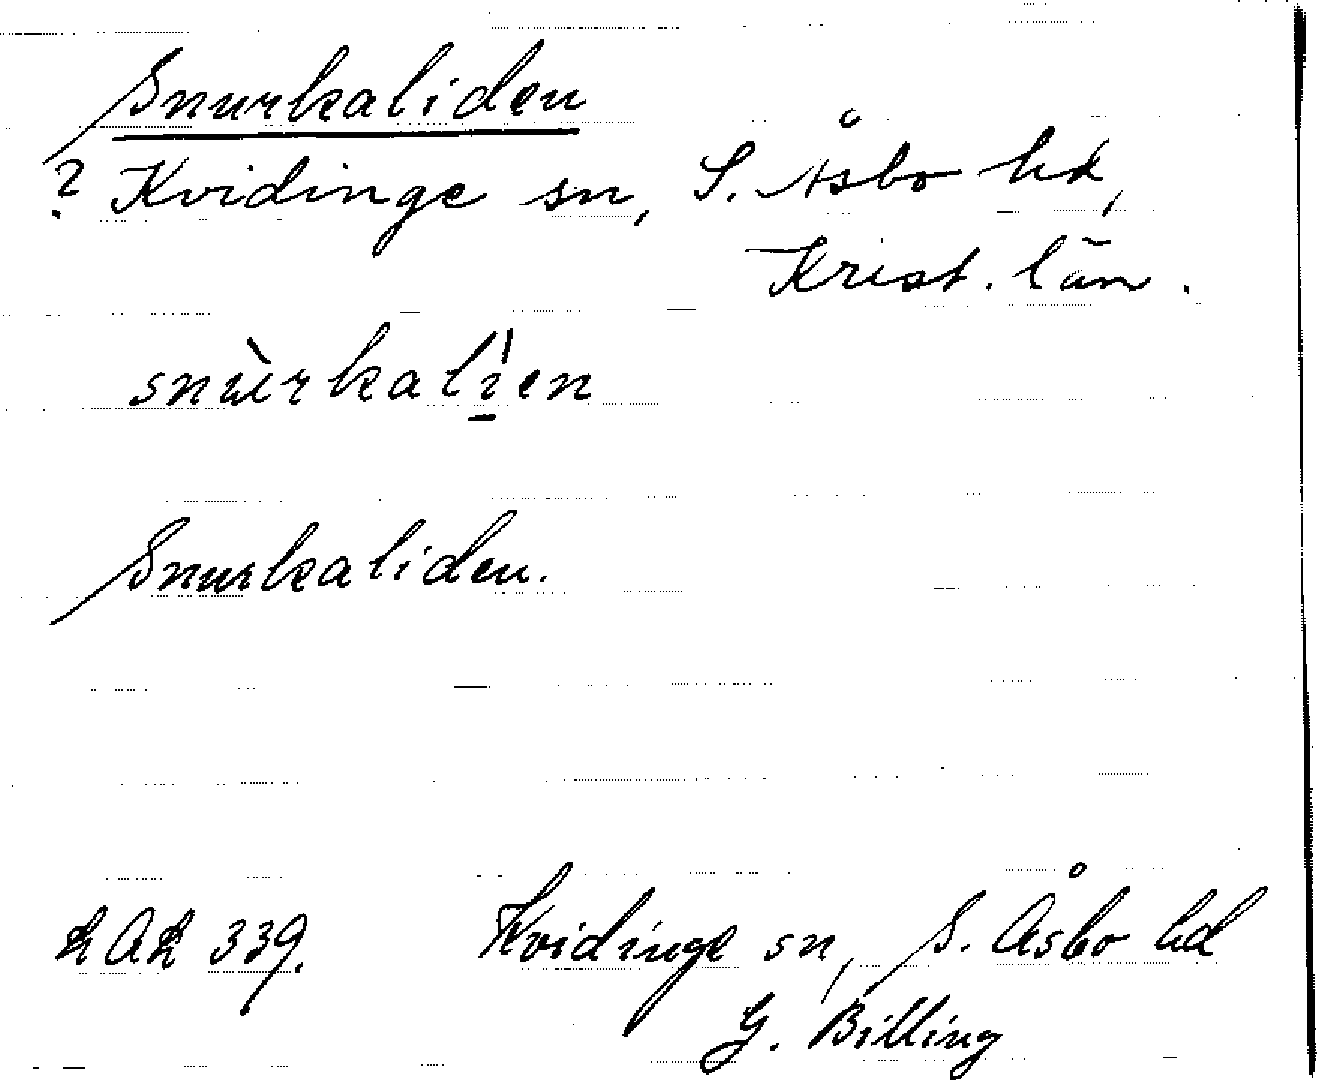 Snurkaliden
? Kvidinge sn, S. Åsbo hd,
Krist. län.
snùrkalı̍en
Snurkaliden.
LAL 339. Kvidinge sn, S. Åsbo hd
G. Billing